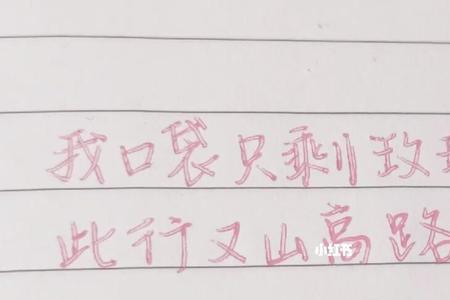 我口袋只剩玫
此行又山高路
小红书